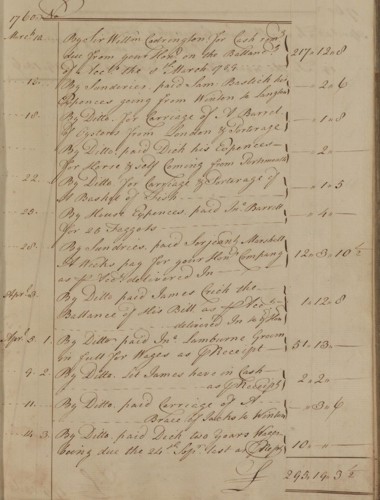 1760 No
March 10 By Sir Willm Codrington for Cash
due from your Honr on the Ballance
of a Acct the 8th March 1760 217 " 12 " 8
15 By Sundries paid Sam Bostick his
Expences going from Winton to " 2 " 6
18 By Ditto for Carriage of A Barrel
of Oysters from London & Porterage " 1 " 8
By Ditto paid Dick his Expences
for Horse & self Coming from Portsmouth " 2 "
22 By Ditto for Carriage & Porterage of
A Basket of Fish " 1 " 3
25 By House Expences paid Jno Barrett
for 20 Faggots " 4 "
28 By Sundries paid Serjeant Marshall
A Weeks pay for your Honrs Company
as delivered In 12 " 3 " 10 1/2
Apr 3 By Ditto paid James the
Ballance of His Bill as
delivered In 1 " 12 " 8
Apr 5 1 By Ditto paid Jno Lamburne Groom
in full for Wages as Receipt 51 " 13 "
9 2 By Ditto let James have in Cash
as Receipt 2 " 2 "
11 By Ditto paid Carriage of A
Brace of to Winton " 3 " 6
14 3 By Ditto paid Dick two Years Wages
being due the 24th last as 10 "
£ 295 " 19 " 3 1/2